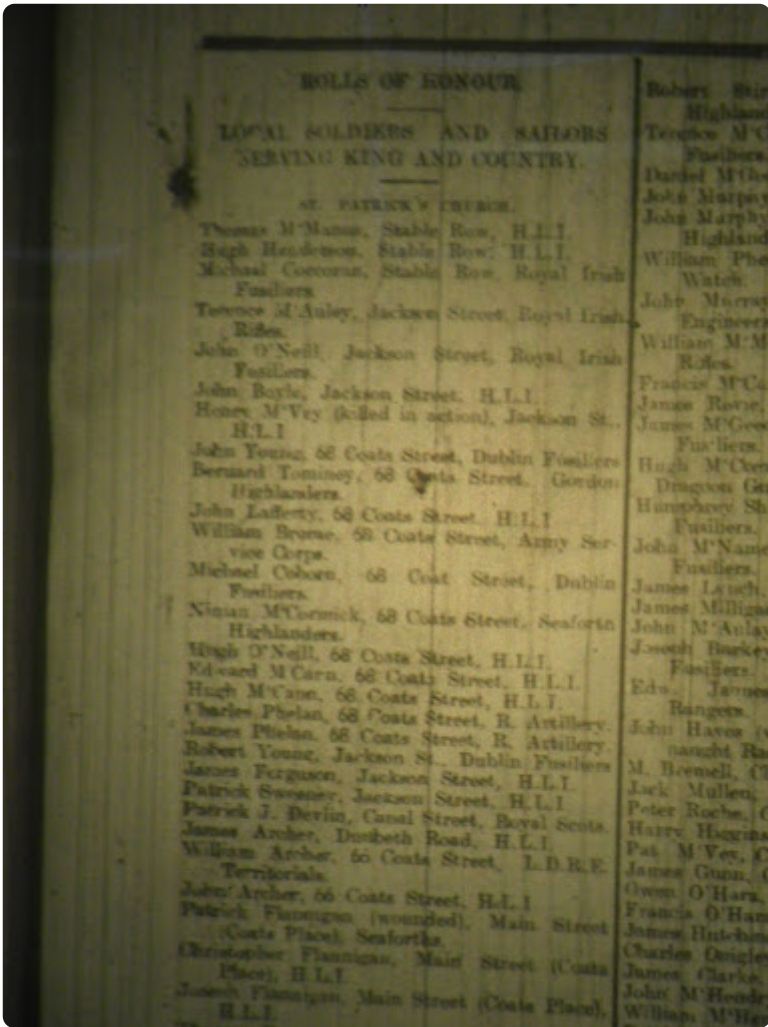 ROLLS OF HONOUR
LOCAL SOLDIERS AND SAILORS
SERVING KING AND COUNTRY.
ST. PATRICK'S CHURCH.
Thomas M'Manus, Stable Row, H.L.I.
Hugh Henderson, Stable Row, H.L.I.
Michael Corcoran, Stable Row, Royal Irish
Fusiliers.
Terence M'Auley, Jackson Street, Royal Irish
Rifles.
John O'Neill, Jackson Street, Royal Irish
Fusiliers.
John Boyle, Jackson Street, H.L.I.
Henry M'Vey (killed in action), Jackson St.,
H.L.I
John Young, 68 Coats Street, Dublin Fusiliers
Bernard Tominey, 68 Coats Street, Gordon
Highlanders.
John Lafferty, 68 Coats Street, H.L.I
William 68 Coats Street, Army Ser-
vice Corps.
Michael Coborn, 68 Coat Street, Dublin
Fusiliers.
Ninian M'Cormick, 68 Coats Street, Seaforth
Highlanders.
Hugh O'Neill, 68 Coats Street, H.L.I.
Edward M'Carn, 68 Coats Street, H.L.I.
Hugh M'Cann, 68 Coats Street, H.L.I.
Charles Phelan, 68 Coats Street, R. Artillery.
James Phelan, 68 Coats Street, R. Artillery.
Robert Young, Jackson St., Dublin Fusiliers
James Ferguson, Jackson Street, H.L.I.
Patrick Sweeney, Jackson Street, H.L.I.
Patrick J. Devlin, Canal Street, Royal Scots.
James Archer, Dunbeth Road, H.L.I.
William Archer, 66 Coats Street, L.D.R.E.
Territorials.
John Archer, 66 Coats Street, H.L.I
Patrick Flannigan (wounded), Main Street
(Coats Place), Seaforths.
Christopher Flannigan, Main Street (Coats
Place), H.L.I.
Joseph Flannigan, Main Street (Coats Place),
H.L.I.
Robert
Highland
Terence M'C
Fusiliers.
Daniel
John Murphy
John Murphy
Highland
William Phe
Watch.
John Murray
Engineers
William M'M
Rifles.
Francis M'C
James
James M'Gee
Fusiliers.
Hugh
Dragoon Gu
Humphrey Sh
Fusiliers.
John M'Name
Fusiliers.
James Lynch,
James Milliga
John M'Aulay
Joseph
Fusiliers.
Edw. James
Rangers.
John Hayes
naught Ra
M. Bremell, C
Jack Mullen,
Peter Roche,
Harry Higgins
Pat M'Vey, C
James Gunn,
Owen O'Hara,
Francis O'Har
James Hutchin
Charles Quigley
James Clarke,
John M'Hendr
William